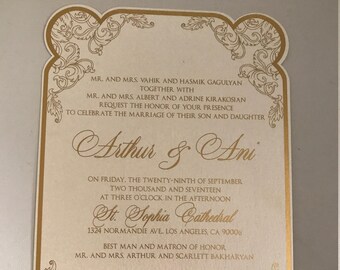 MR. AND MRS. VAHIK AND HASMIK GAGULYAN
TOGETHER WITH
MR. AND MRS. ALBERT AND ADRINE KIRAKOSIAN
REQUEST THE HONOR OF YOUR PRESENCE
TO CELEBRATE THE MARRIAGE OF THEIR SON AND DAUGHTER
Arthur & Ani
ON FRIDAY, THE TWENTY-NINTH OF SEPTEMBER
TWO THOUSAND AND SEVENTEEN
AT THREE O'CLOCK IN THE AFTERNOON
St. Sophia Cathedral
1324 NORMANDIE AVE. LOS ANGELES, CA 90006
BEST MAN AND MATRON OF HONOR
MR. AND MRS. ARTHUR AND SCARLETT BAKHARYAN